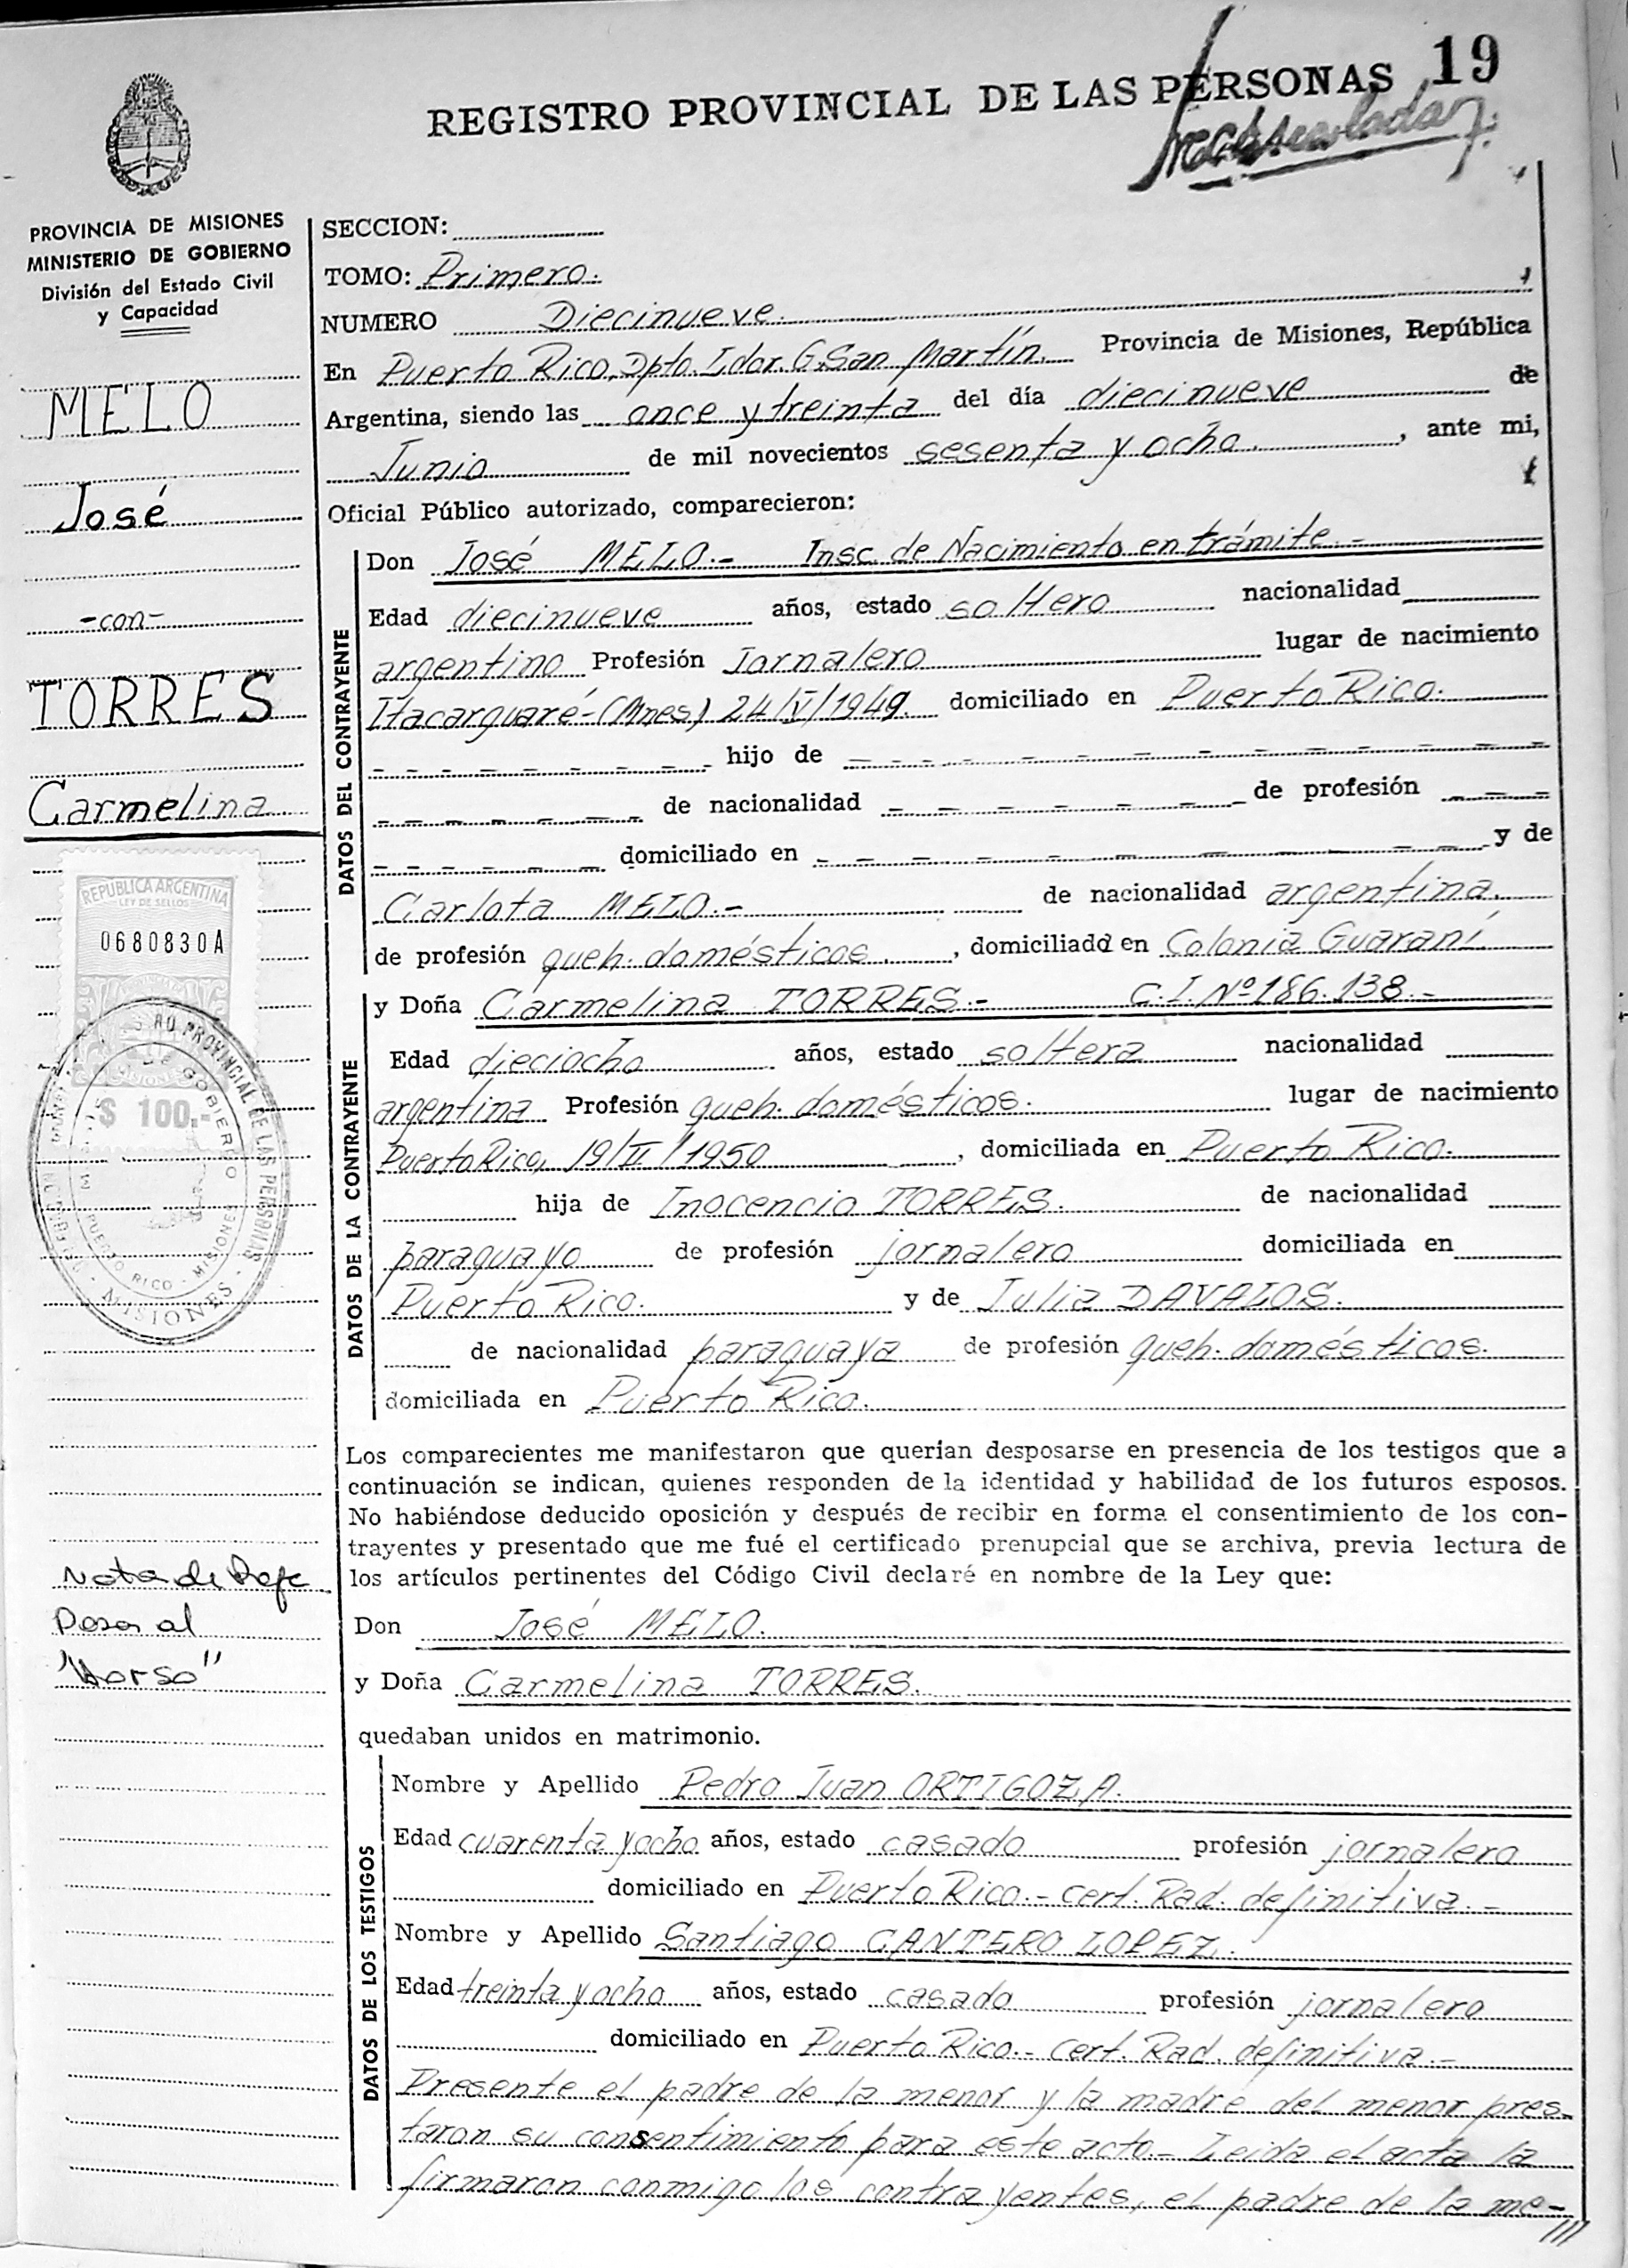 REGISTRO PROVINCIAL DE LAS PERSONAS 19
PROVINCIA DE MISIONES
MINISTERIO DE GOBIERNO
División del Estado Civil
y Capacidad
MELO
José
-con-
TORRES
Carmelina
REPUBLICA ARGENTINA
LEY DE SELLOS
0680830A
$ 100.-
PUERTO RICO - MISIONES
MISIONES
Nota de Refe
Pasa al
"Dorso"
SECCION:
TOMO: Primero.
NUMERO Diecinueve.
En Puerto Rico, Dpto. Ldor. G. San Martín. Provincia de Misiones, República
Argentina, siendo las once y treinta del día diecinueve de
Junio de mil novecientos sesenta y ocho. , ante mi,
Oficial Público autorizado, comparecieron:
DATOS DEL CONTRAYENTE
Don José MELO.- Insc. de Nacimiento en trámite.-
Edad diecinueve años, estado soltero nacionalidad
argentino Profesión Jornalero lugar de nacimiento
Itacaruaré-(Mnes) 24/V/1949. domiciliado en Puerto Rico.
- - - - - - - - hijo de - - - - - - - - - - - -
- - - - - - - de nacionalidad - - - - - - - de profesión - - -
- - - - - - domiciliado en - - - - - - - - - - y de
Carlota MELO.- de nacionalidad argentina.
de profesión queh. domésticos. , domiciliado en Colonia Guaraní
DATOS DE LA CONTRAYENTE
y Doña Carmelina TORRES.- C.I. Nº 186.138.-
Edad dieciocho años, estado soltera nacionalidad
argentina Profesión queh. domésticos. lugar de nacimiento
Puerto Rico, 19/II/1950 , domiciliada en Puerto Rico.
hija de Inocencio TORRES. de nacionalidad
paraguayo de profesión jornalero domiciliada en
Puerto Rico. y de Julia DAVALOS.
de nacionalidad paraguaya de profesión queh. domésticos.
domiciliada en Puerto Rico.
Los comparecientes me manifestaron que querían desposarse en presencia de los testigos que a
continuación se indican, quienes responden de la identidad y habilidad de los futuros esposos.
No habiéndose deducido oposición y después de recibir en forma el consentimiento de los con-
trayentes y presentado que me fué el certificado prenupcial que se archiva, previa lectura de
los artículos pertinentes del Código Civil declaré en nombre de la Ley que:
Don José MELO.
y Doña Carmelina TORRES.
quedaban unidos en matrimonio.
DATOS DE LOS TESTIGOS
Nombre y Apellido Pedro Juan ORTIGOZA.
Edad cuarenta y ocho años, estado casado profesión jornalero
domiciliado en Puerto Rico.- Cert. Rad. definitiva.-
Nombre y Apellido Santiago CANTERO LOPEZ.
Edad treinta y ocho años, estado casado profesión jornalero
domiciliado en Puerto Rico.- Cert. Rad. definitiva.-
Presente el padre de la menor y la madre del menor pres-
taron su consentimiento para este acto.- Leida el acta la
firmaron conmigo los contrayentes, el padre de la me-
///